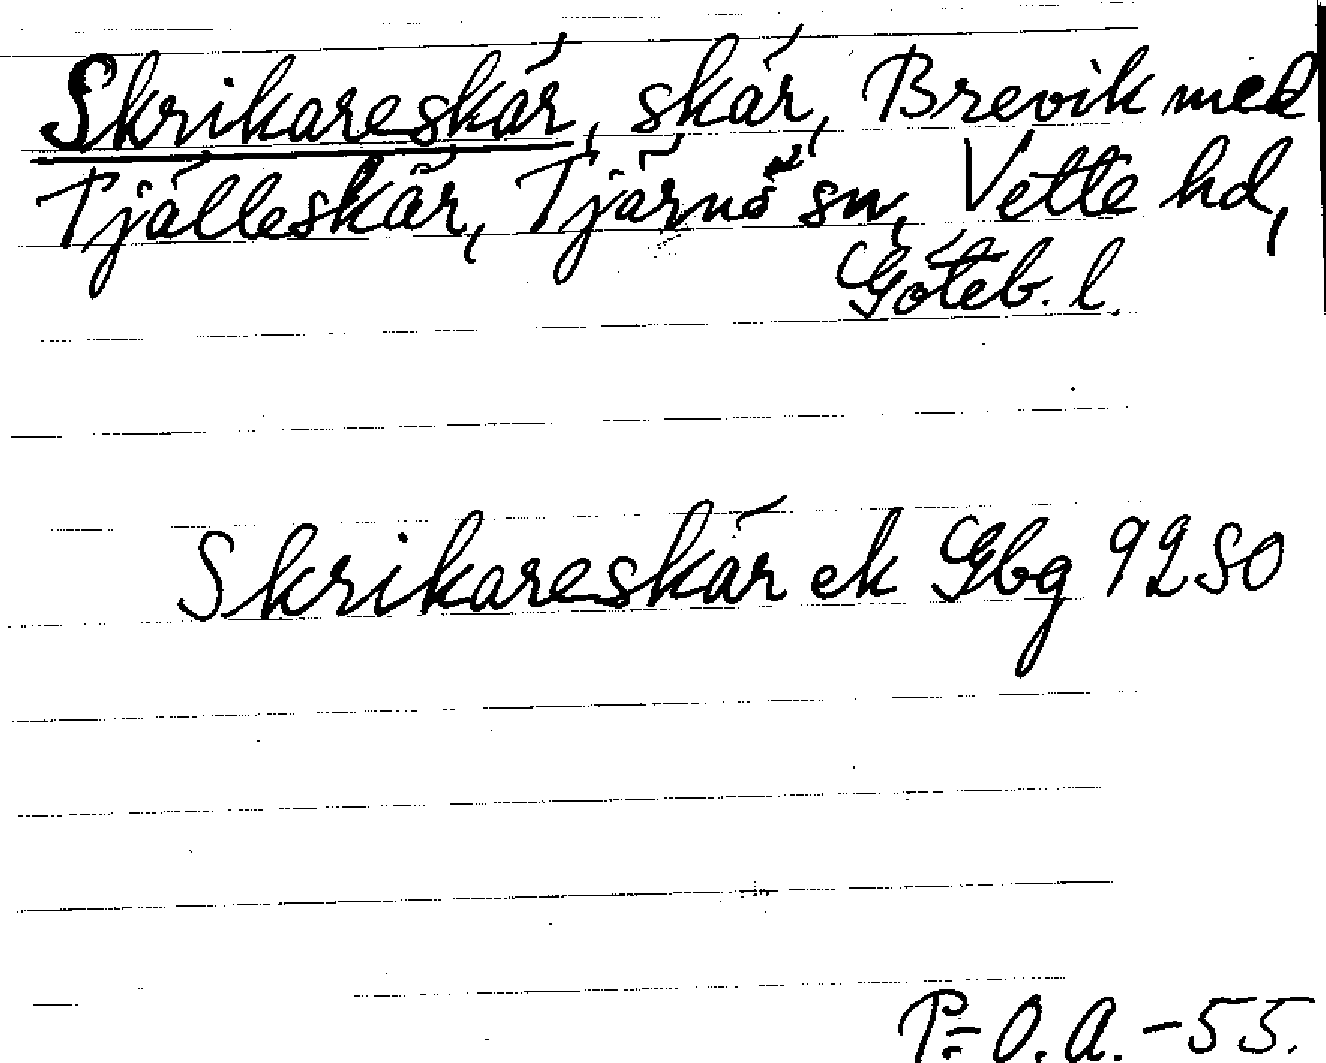 Skrikareskär, skär, Brevik med
Tjälleskär, Tjärnö sn, Vette hd,
Göteb. l.
Skrikareskär ek Gbg 9280
P=O.A.-55.